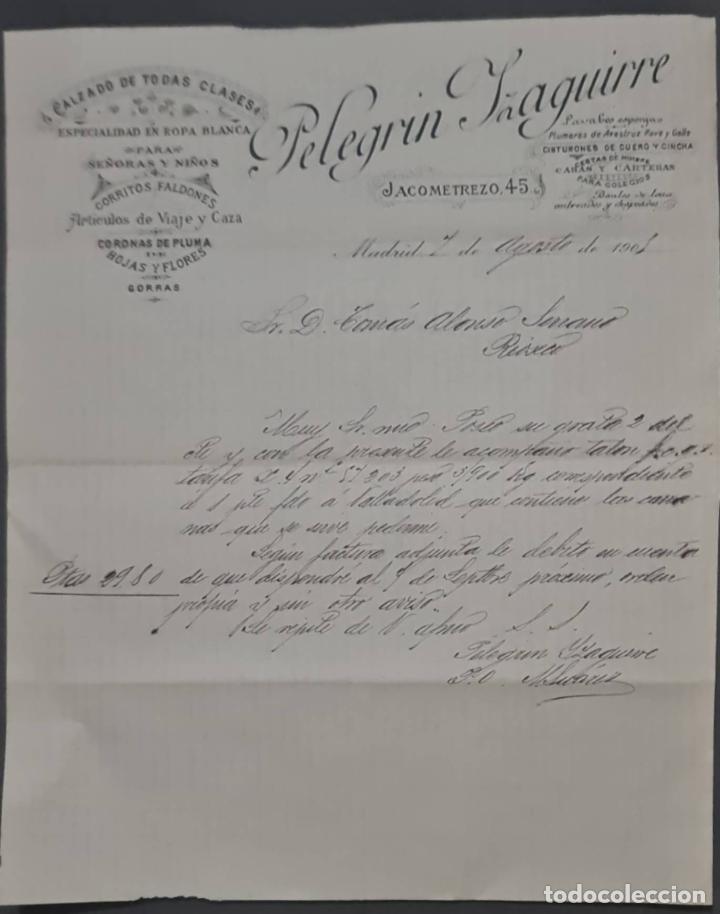 CALZADO DE TODAS CLASES
ESPECIALIDAD EN ROPA BLANCA
PARA
SEÑORAS Y NIÑOS
GORRITOS FALDONES
Artículos de Viaje y Caza
CORONAS DE PLUMA
HOJAS Y FLORES
GORRAS
Pelegrin Yzaguirre
JACOMETREZO, 45.
Lavabos esponjas
Plumeros de Avestruz Pavo y Gallo
CINTURONES DE CUERO Y CINCHA
CESTAS DE MIMBRE
CABÁS Y CARTERAS
PARA COLEGIOS
Baules de lona
Madrid 7 de Agosto de 190
Sr. D. Tomás Alonso Serrano
Rioseco
Muy Sr. mio: Poseo su grata 2 del
y con la presente le acompaño talon
tarifa nº 57203 peso 3'900 Kg correspondiente
á 1 fdo á Valladolid que contiene las
que se sirve pedirme.
Según factura adjunta le debito en cuenta
Ptas 29,80
de que dispondré al 7 de Septbre próximo, orden
propia y sin otro aviso
Se repite de V. afmo S. S.
Pelegrin Yzaguirre
P.O.
todocoleccion